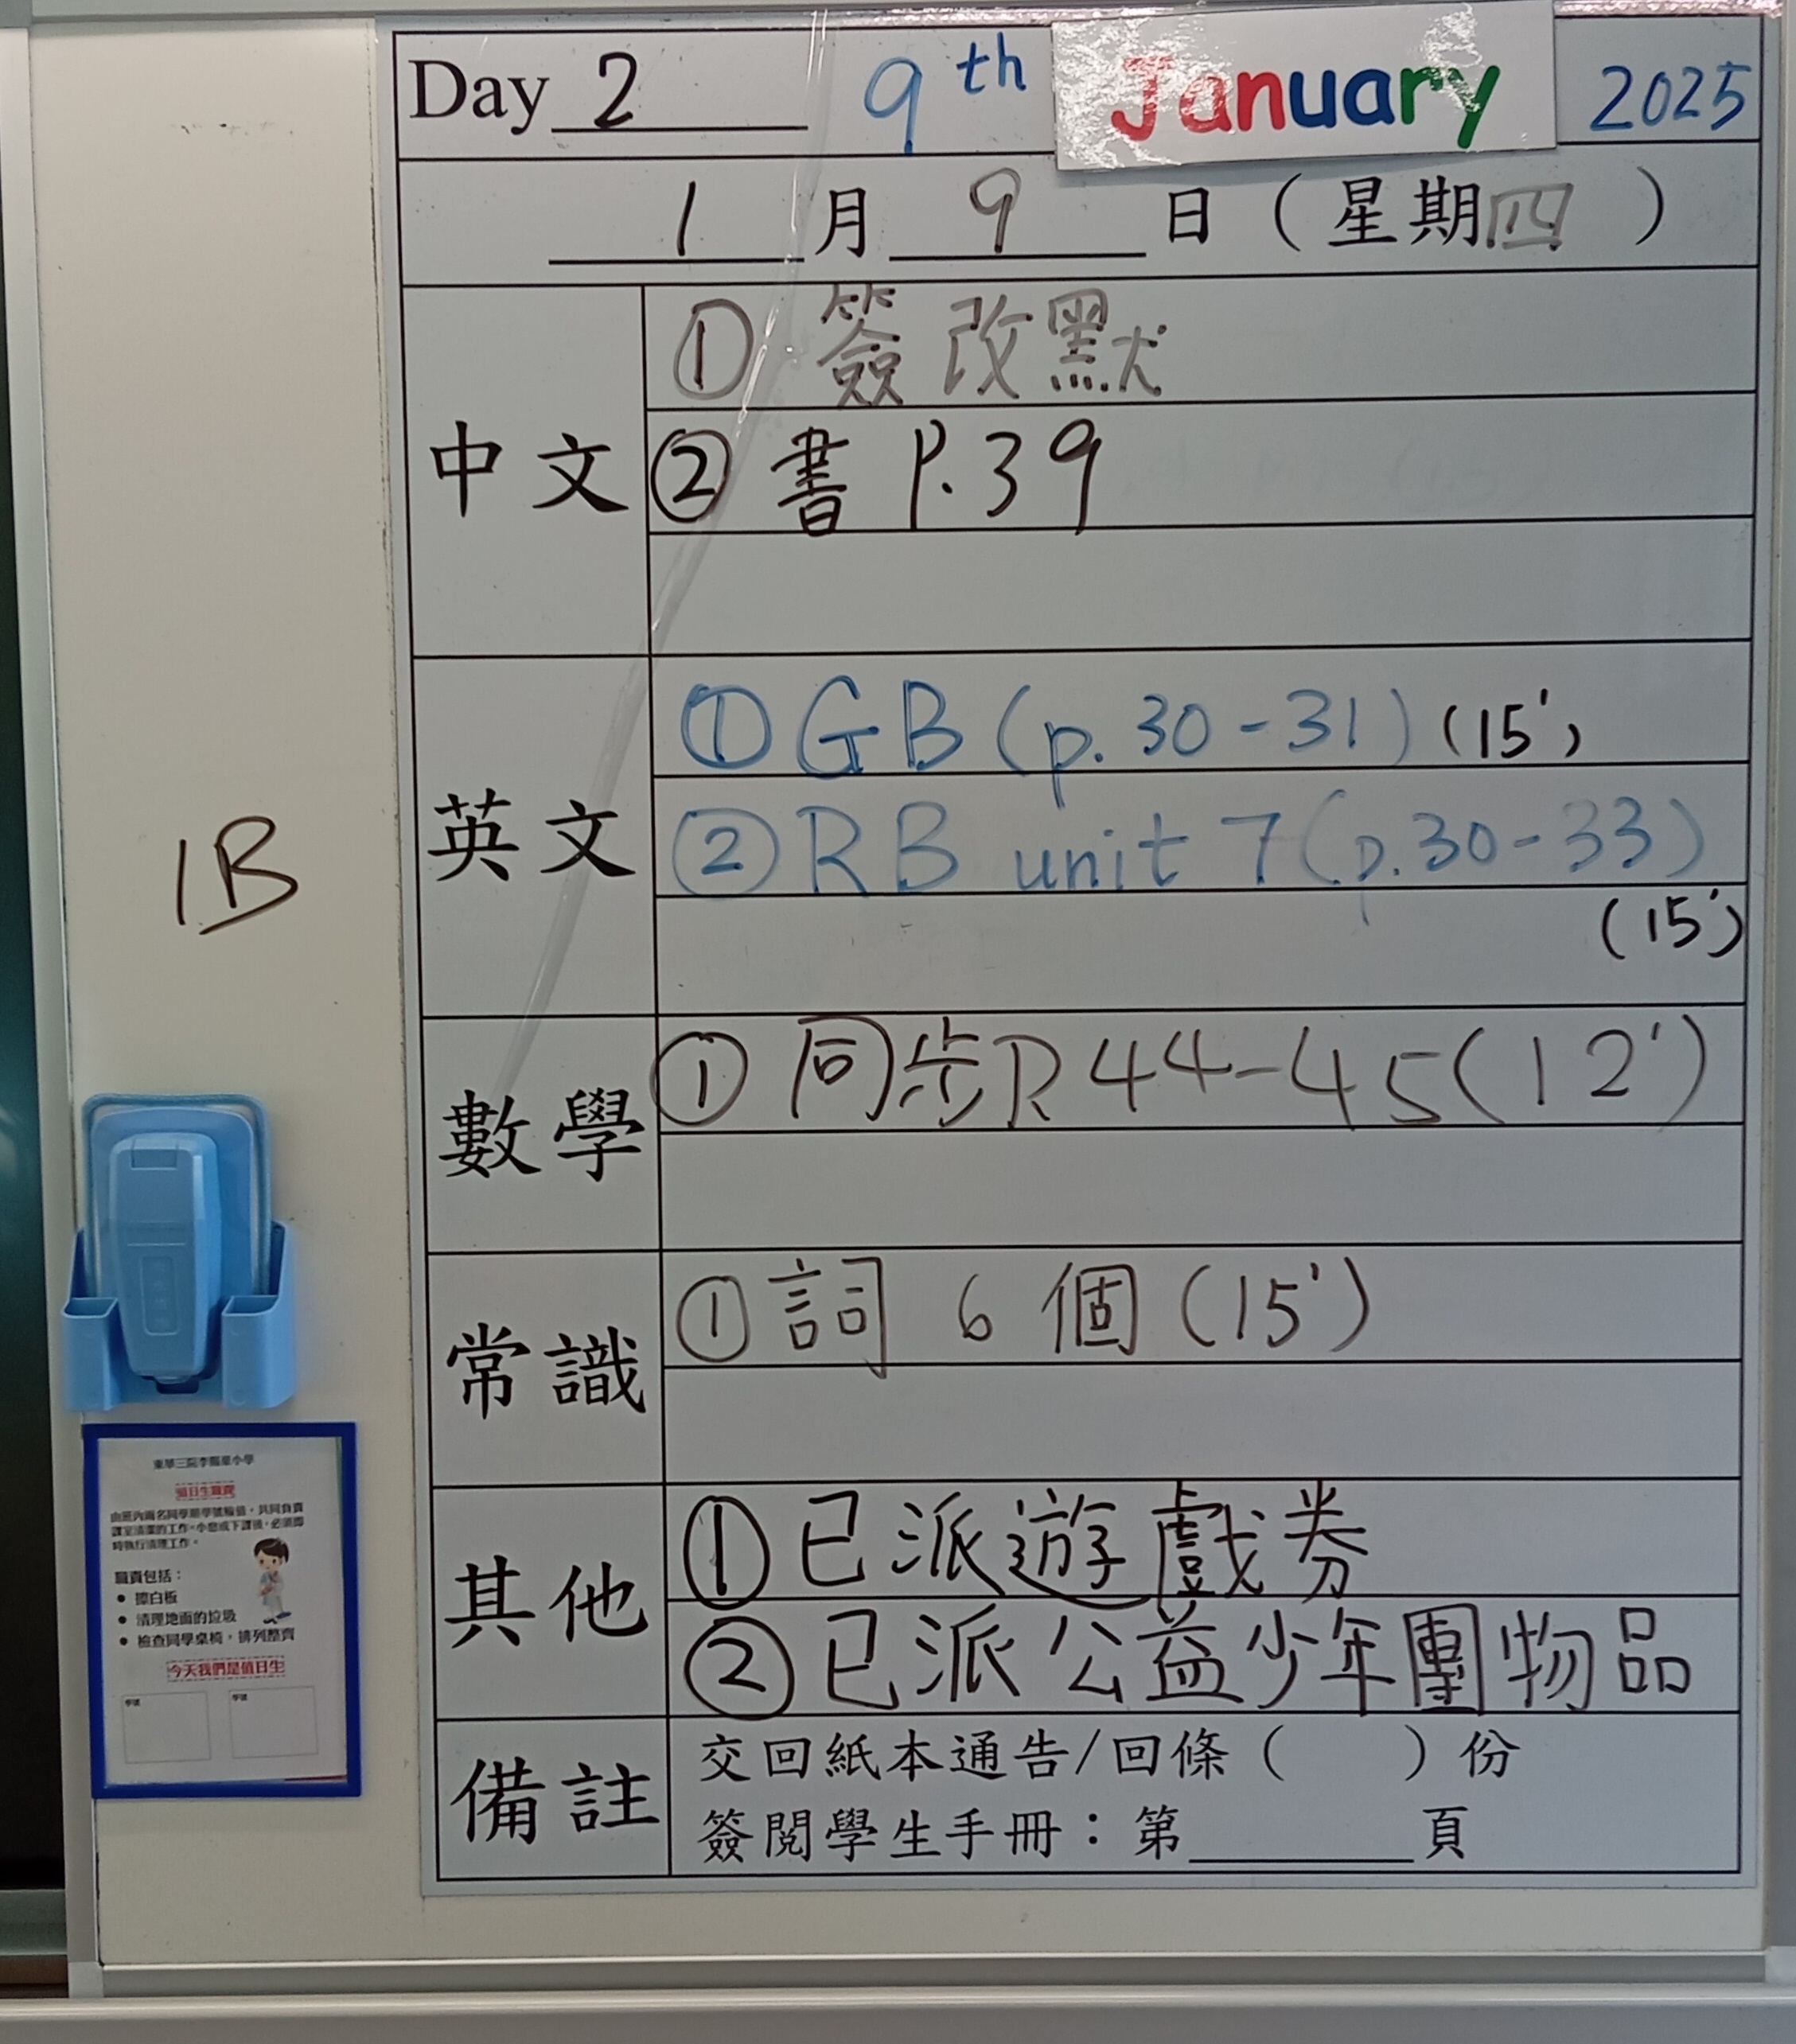 Day 2 9th January 2025
1月9日(星期四)
中文
① 簽改默
② 書 P.39
英文
① GB (p.30-31) (15')
② RB unit 7 (p.30-33)
(15')
數學
① 同步P.44-45(12')
常識
① 詞 6 個 (15')
其他
① 已派遊戲券
② 已派公益少年團物品
備註
交回紙本通告/回條( )份
簽閱學生手冊:第______頁
1B
值日生職責
由班內兩名同學順學號輪值,共同負責
課室清潔的工作。小息或下課後,必須即
時執行清理工作。
職責包括:
• 擦白板
• 清理地面的垃圾
• 檢查同學桌椅,排列整齊
今天我們是值日生
學號 學號